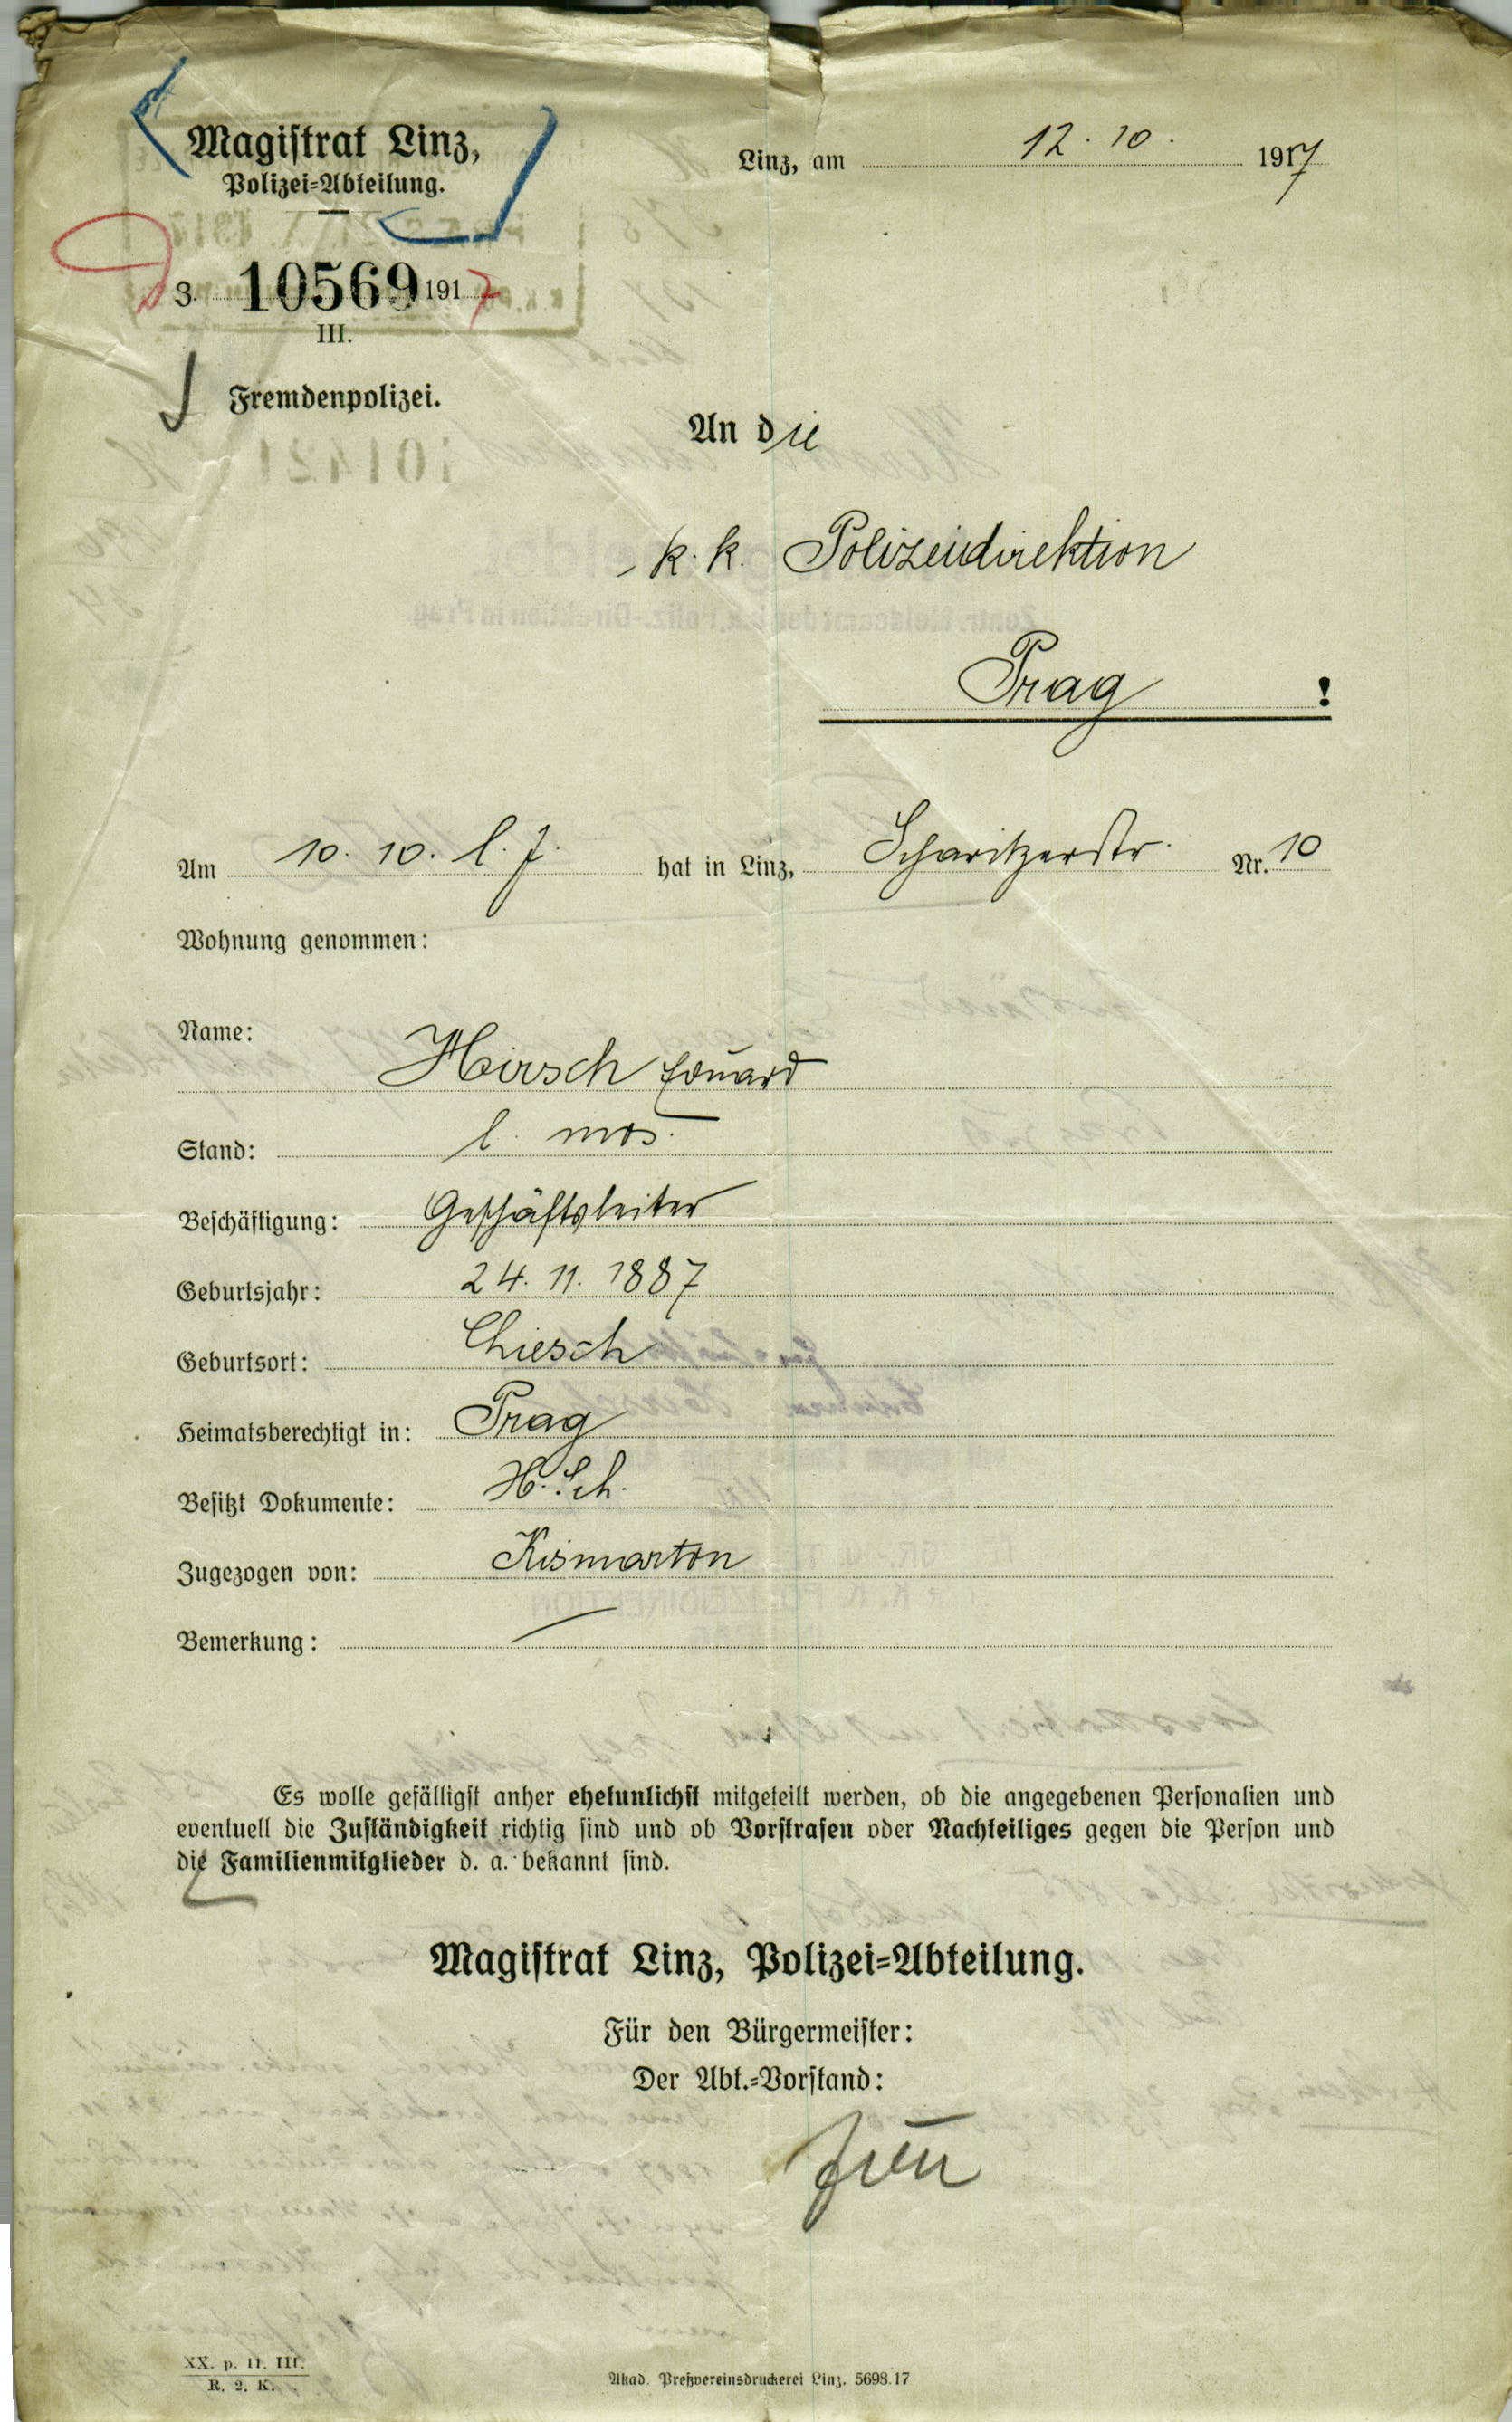 Magistrat Linz,
Polizei-Abteilung.
Linz, am 12. 10. 1917
Z. 10569 1917
III.
Fremdenpolizei.
An die
k. k. Polizeidirektion
Prag !
Am 10. 10. l. J. hat in Linz, Scharitzerstr. Nr. 10
Wohnung genommen:
Name:
Hirsch Eduard
Stand: l. mos.
Beschäftigung: Geschäftsleiter
Geburtsjahr: 24. 11. 1887
Geburtsort: Chiesch
Heimatsberechtigt in: Prag
Besitzt Dokumente: H. Sch.
Zugezogen von: Kismarton
Bemerkung: —
Es wolle gefälligst anher ehetunlichst mitgeteilt werden, ob die angegebenen Personalien und
eventuell die Zuständigkeit richtig sind und ob Vorstrafen oder Nachteiliges gegen die Person und
die Familienmitglieder d. a. bekannt sind.
Magistrat Linz, Polizei-Abteilung.
Für den Bürgermeister:
Der Abt.-Vorstand:
XX. p. 11. III.
R. 2. K.
Akad. Preßvereinsdruckerei Linz. 5698.17